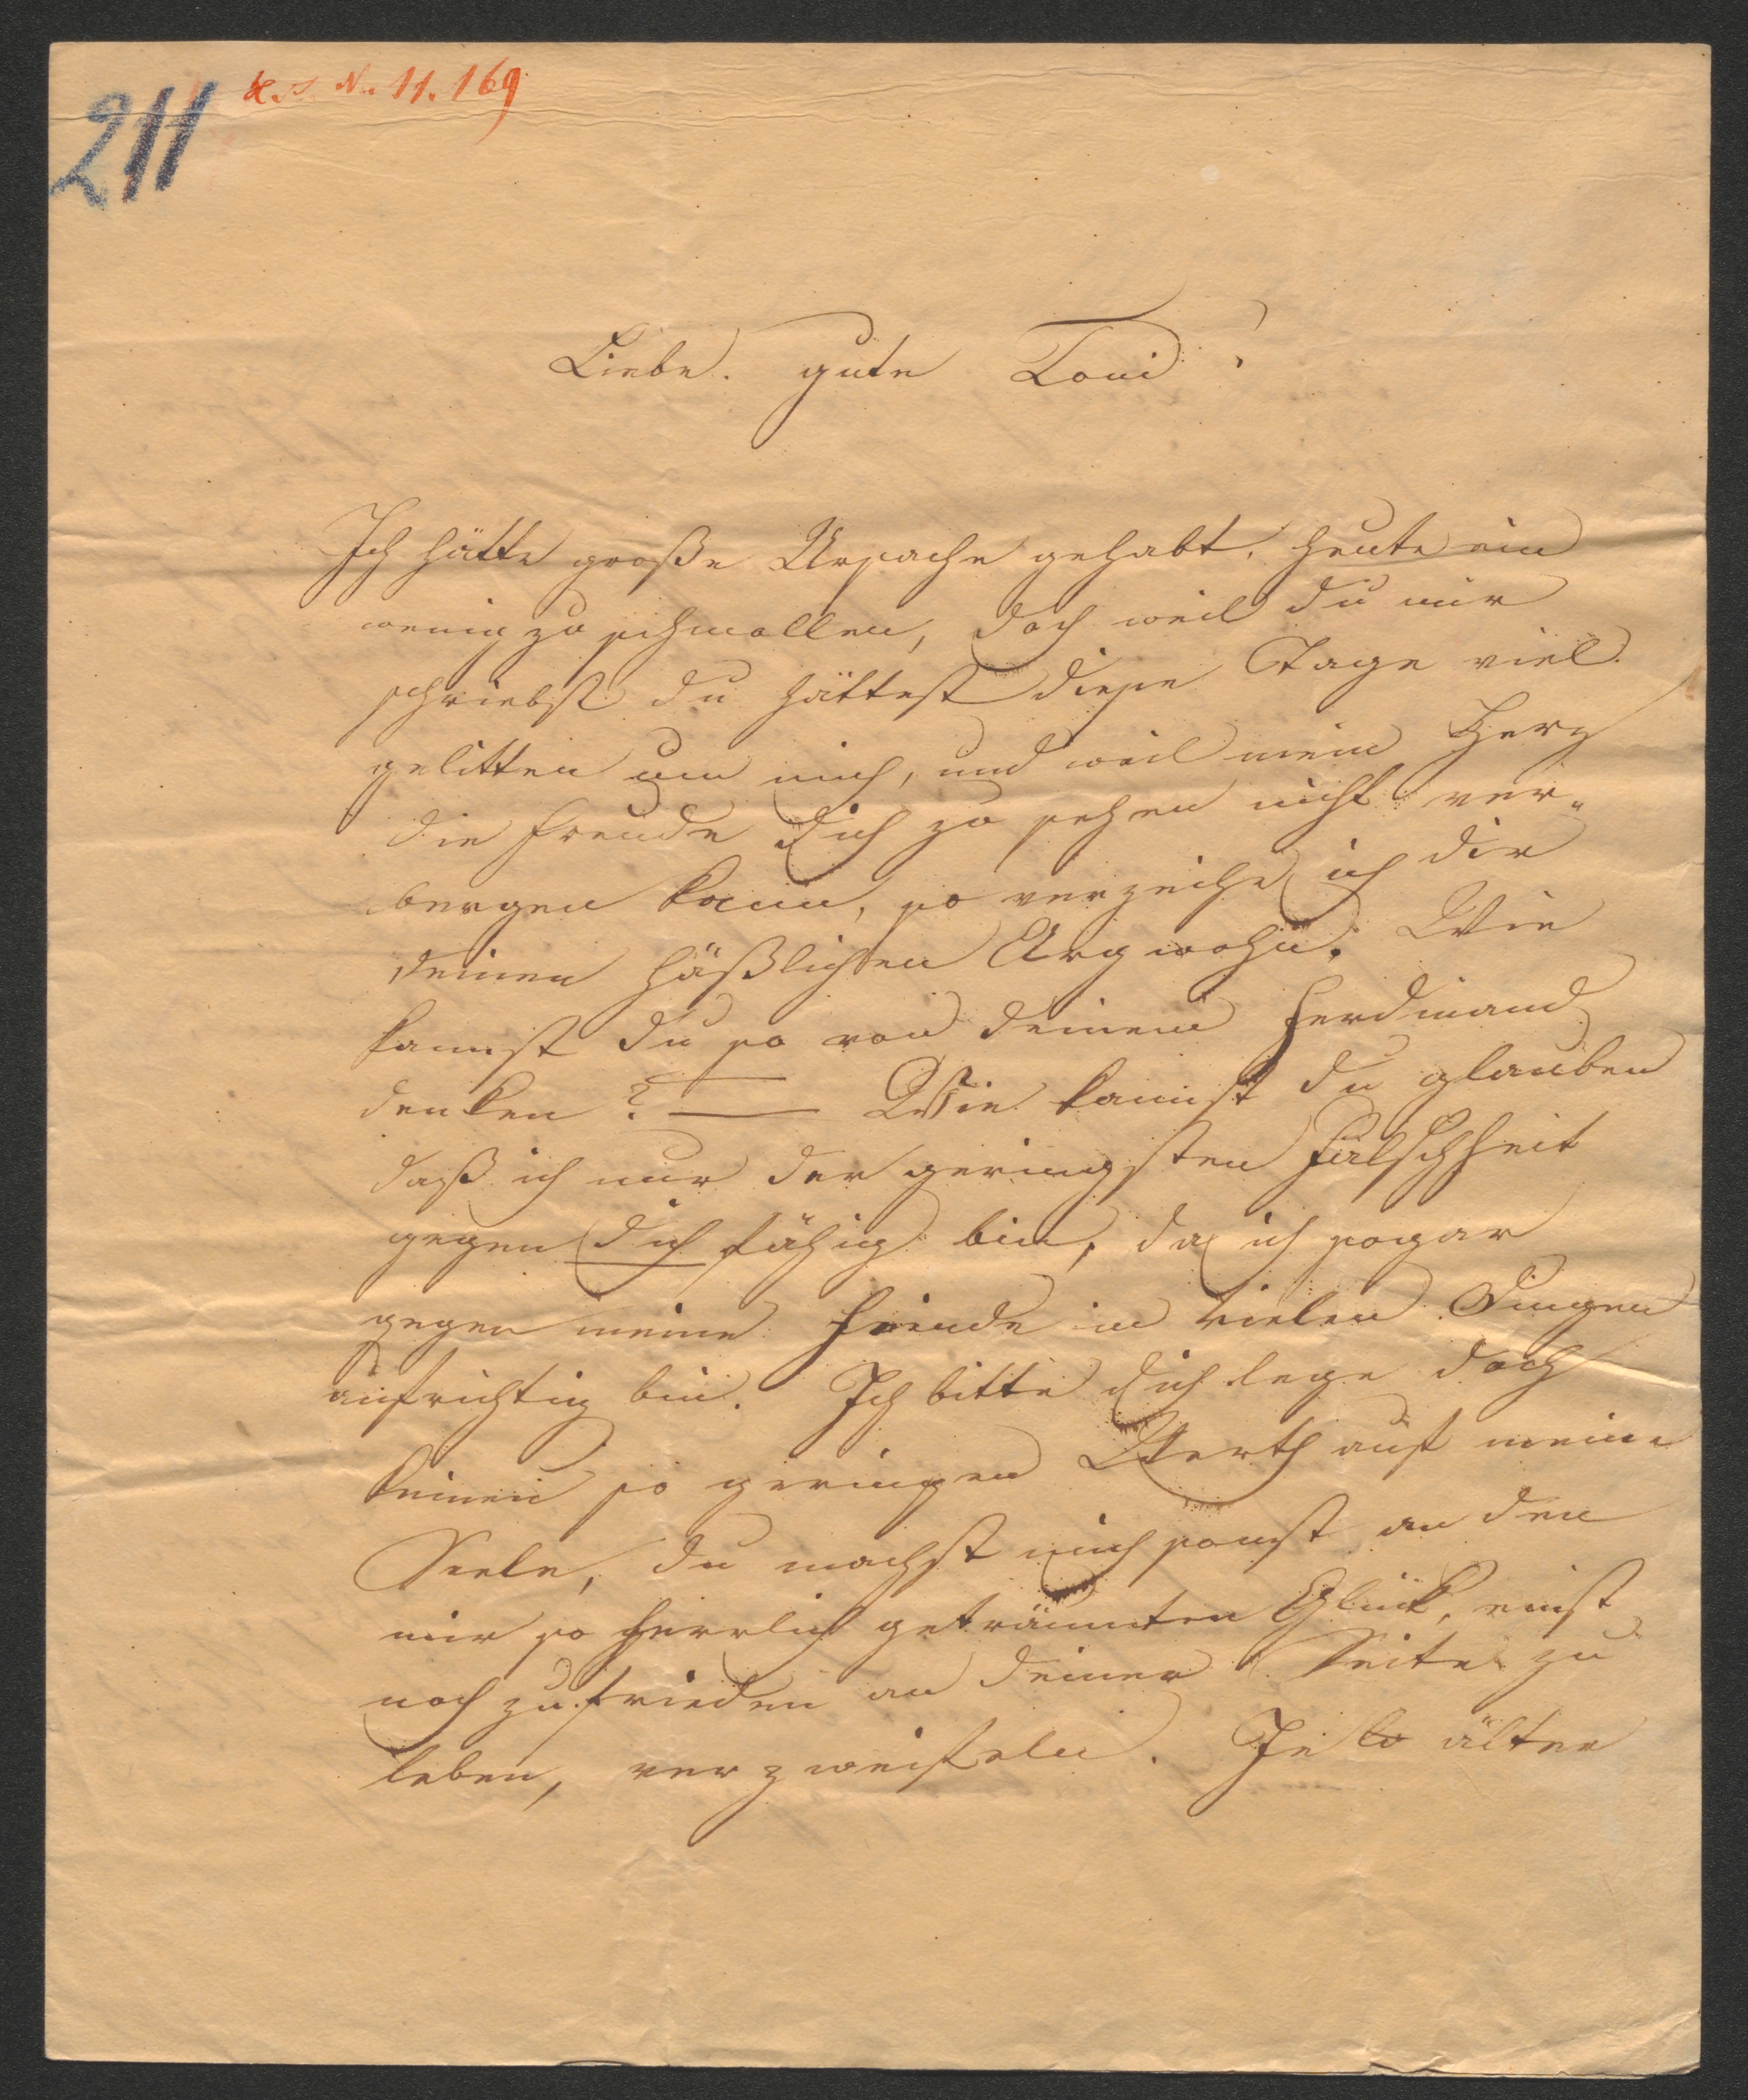 211
N. 11.169
Liebe gute Toni!
Ich hätte große Ursache gehabt, heute ein
wenig zu schmollen, doch weil du mir
schriebst du hättest diese Tage viel
gelitten um mich, und weil mein Herz
die Freude dich zu sehen nicht ver-
bergen kann, so verzeihe ich dir
deinen häßlichen Argwohn. Wie
kannst du so von deinem Ferdinand
denken? — Wie kannst du glauben
daß ich nur der geringsten Falschheit
gegen dich fähig bin, da ich sogar
gegen meine Feinde in vielen Dingen
aufrichtig bin. Ich bitte dich lege doch
keinen so geringen Werth auf meine
Seele, du machst mich sonst an den
mir so herrlich geträumten Glück, einst
noch zufrieden an deiner Seite zu
leben, verzweifeln. Je älter